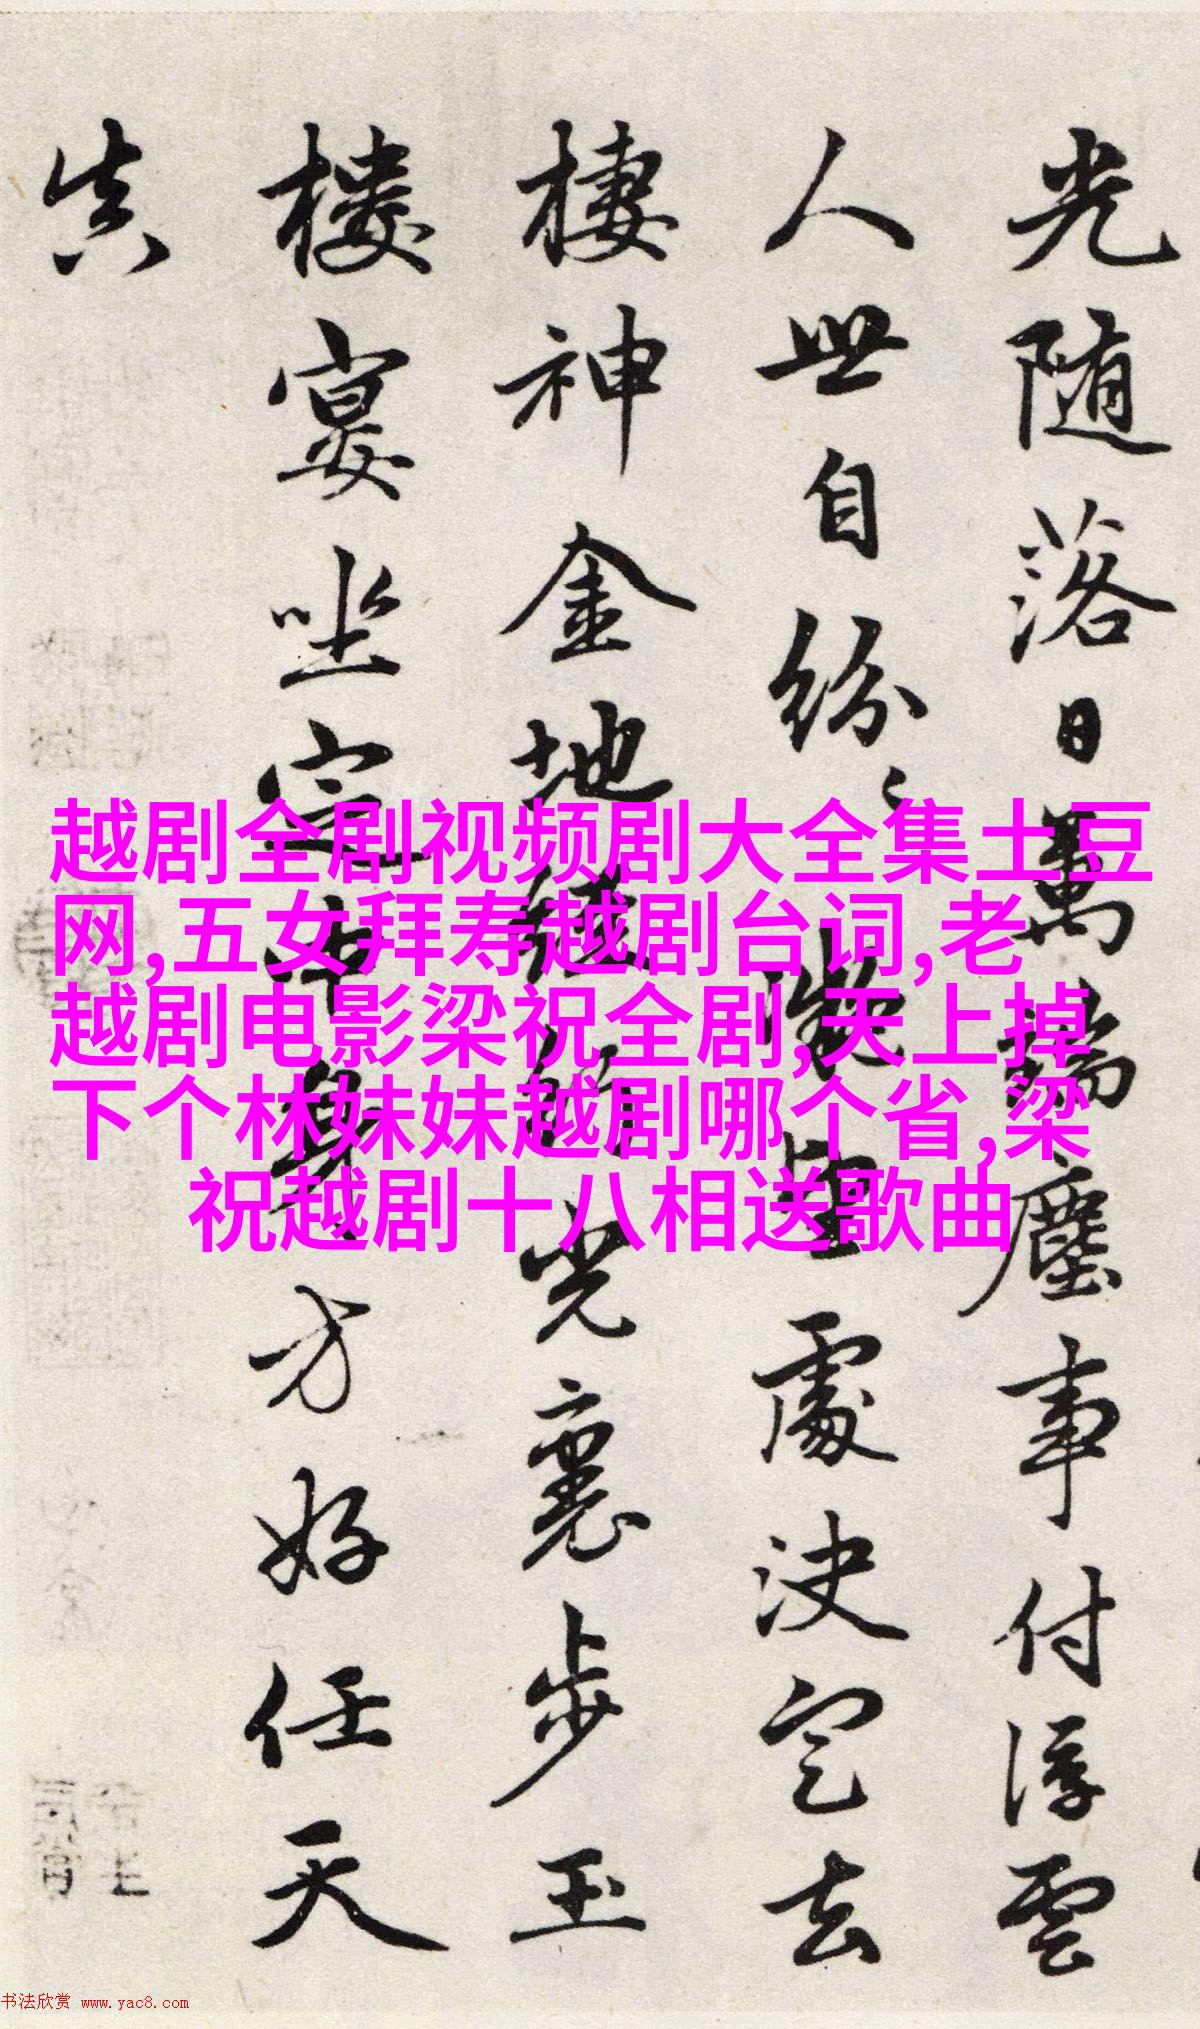 光随落日萬端塵事付浮雲
人世自紛〻凝望處決定去
棲神金地光裏步玉
樓宴坐定中身方好任天
真
越剧全剧视频剧大全集土豆
网,五女拜寿越剧台词,老
越剧电影梁祝全剧,天上掉
下个林妹妹越剧哪个省,梁
祝越剧十八相送歌曲
书法欣赏 www.yac8.com